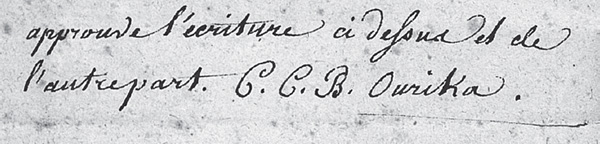 approuve l'écriture ci dessus et de
l'autre part. C. C. B. Ourika.